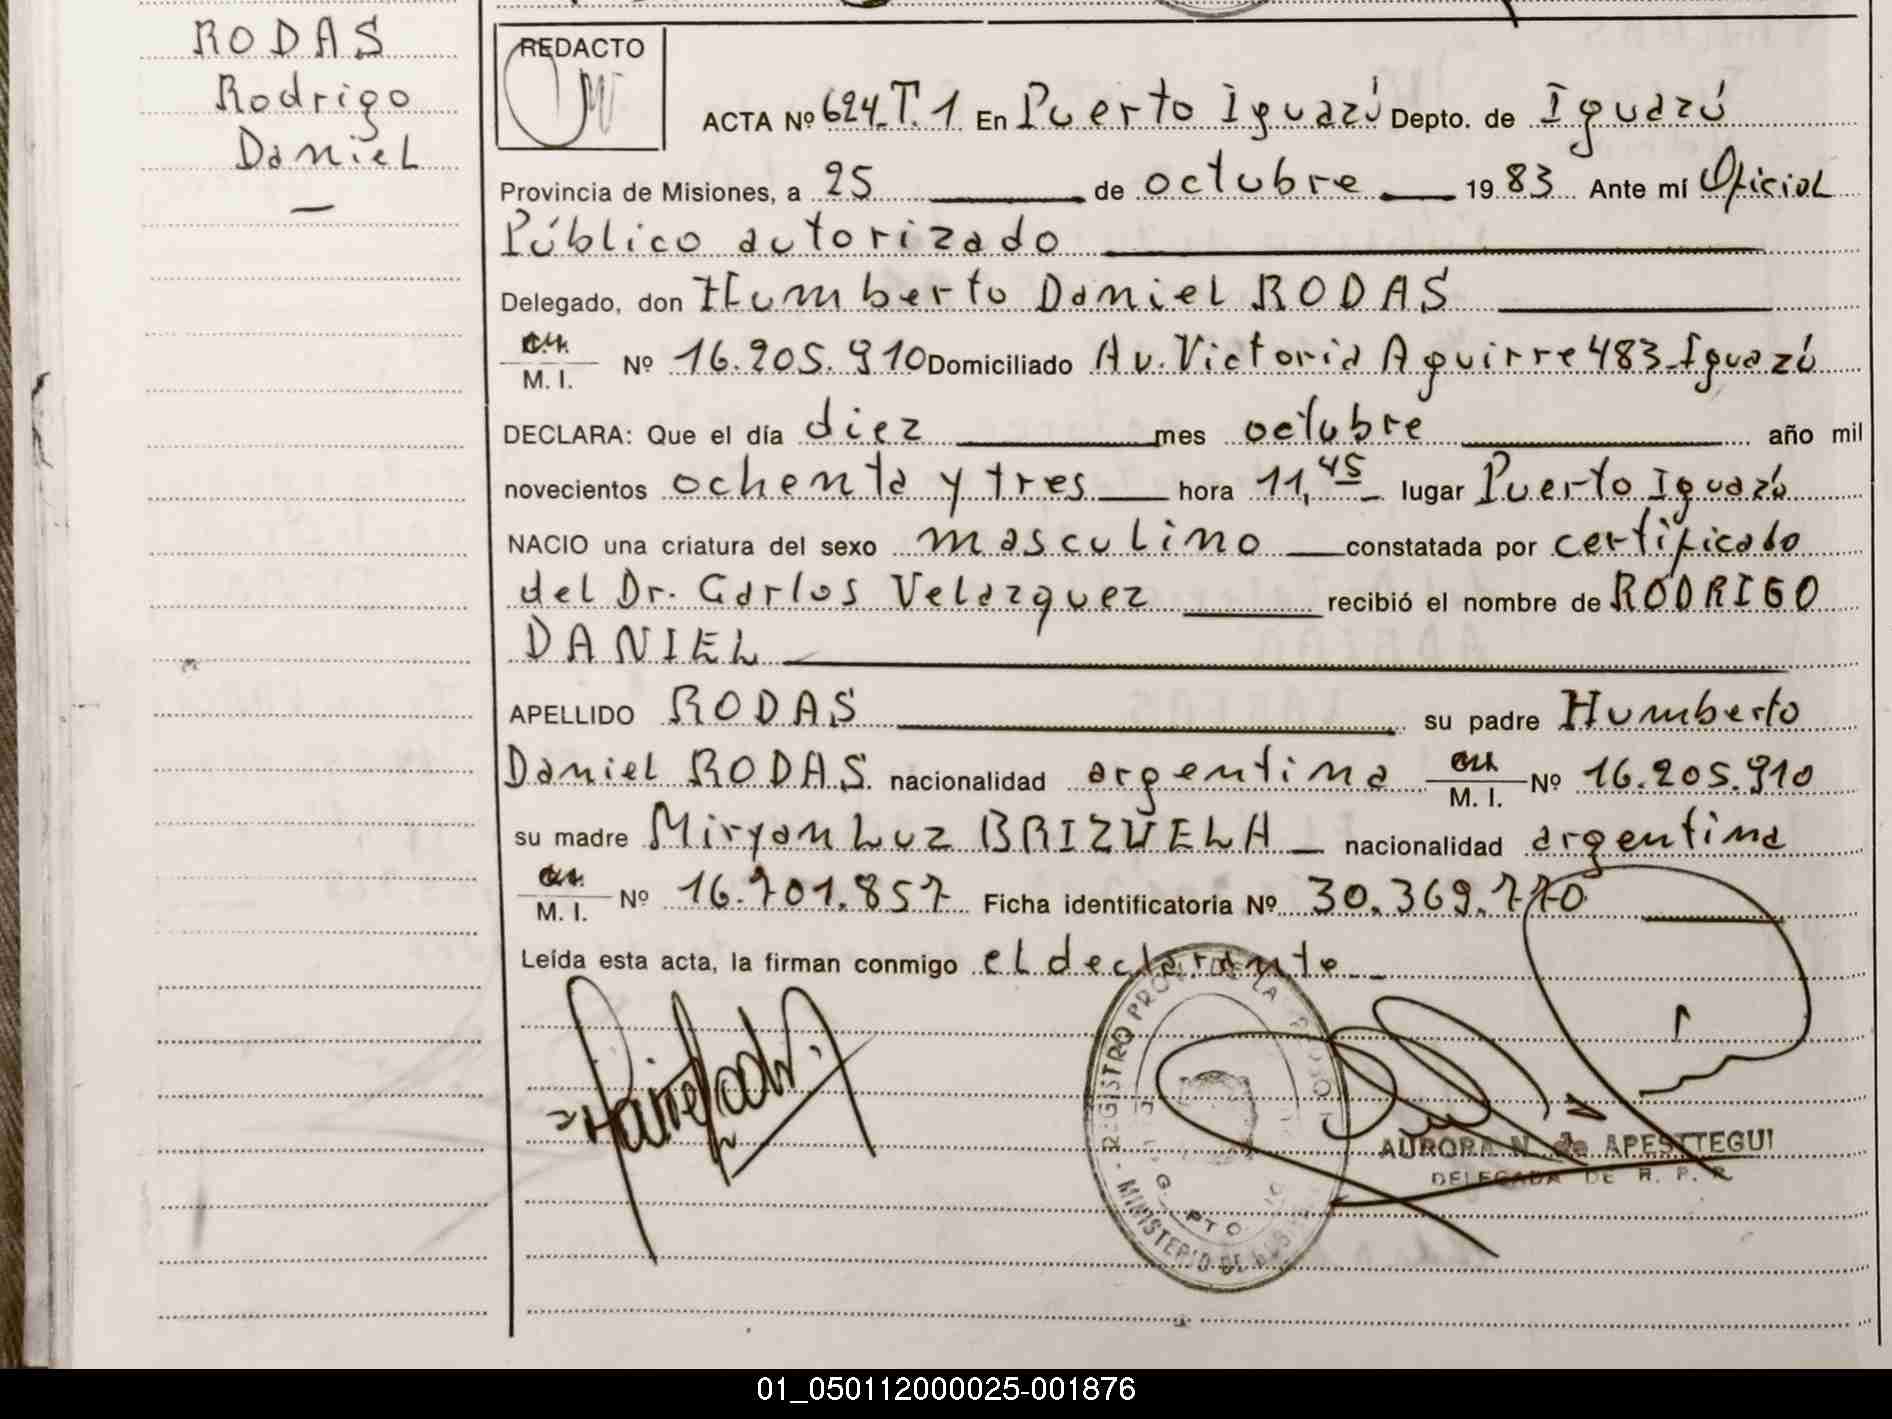 RODAS
Rodrigo
Daniel
REDACTO
ACTA Nº 624-T.1 En Puerto Iguazú Depto. de Iguazú
Provincia de Misiones, a 25 de octubre 1983 Ante mí Oficial
Público autorizado
Delegado, don Humberto Daniel RODAS
M. I. Nº 16.205.910 Domiciliado Av. Victoria Aguirre 483-Iguazú
DECLARA: Que el día diez mes octubre año mil
novecientos ochenta y tres hora 11,45 lugar Puerto Iguazú
NACIO una criatura del sexo masculino constatada por certificado
del Dr. Carlos Velazquez recibió el nombre de RODRIGO
DANIEL
APELLIDO RODAS su padre Humberto
Daniel RODAS. nacionalidad argentina M. I. Nº 16.205.910
su madre Miryan Luz BRIZUELA nacionalidad argentina
M. I. Nº 16.701.857 Ficha identificatoria Nº 30.369.770
Leída esta acta, la firman conmigo el declarante
REGISTRO PROV. DE LA
MINISTERIO DE
AURORA N. de APESTTEGUI
DELEGADA DE R. P. P.
01_050112000025-001876